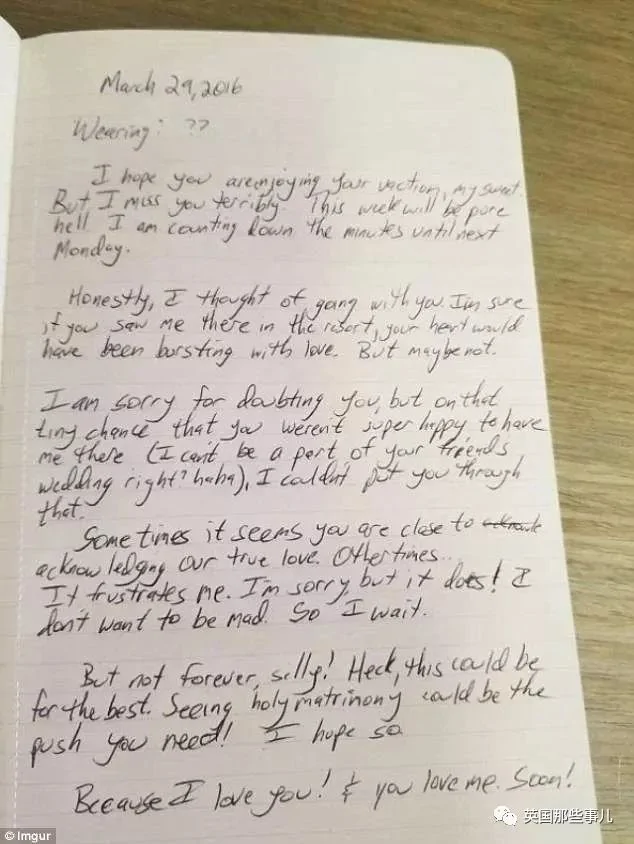 March 29, 2016
Wearing: ??
I hope you are enjoying your vaction, my sweet.
But I miss you terribly. This week will be pure
hell. I am counting down the minutes until next
Monday.
Honestly, I thought of going with you. I'm sure
if you saw me there in the resort, your heart would
have been bursting with love. But maybe not.
I am sorry for doubting you, but on that
tiny chance that you weren't super happy to have
me there (I can't be a part of your friends
wedding right? haha), I couldn't put you through
that.
Sometimes it seems you are close to acknowle
acknowledging our true love. Other times...
It frustrates me. I'm sorry, but it does! I
don't want to be mad. So I wait.
But not forever, silly! Heck, this could be
for the best. Seeing holy matrinony could be the
push you need! I hope so.
Because I love you! & you love me. Soon!
英国那些事儿
© Imgur